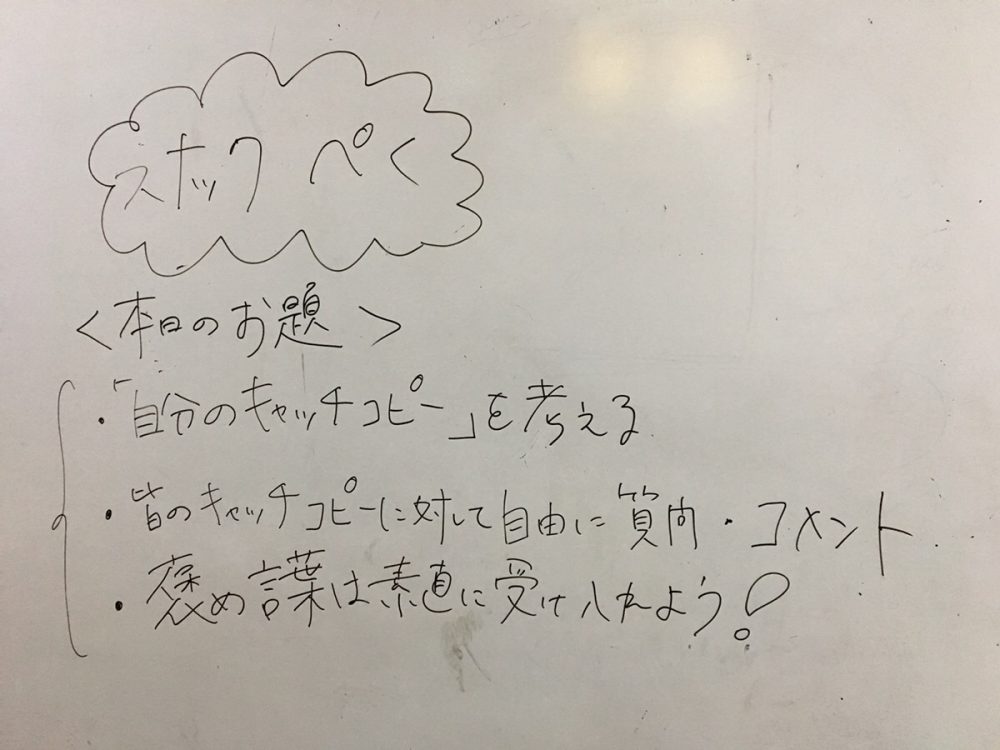 スナック ぺく
<本日のお題>
・「自分のキャッチコピー」を考える
・皆のキャッチコピーに対して自由に質問・コメント
・褒め言葉は素直に受け入れよう!